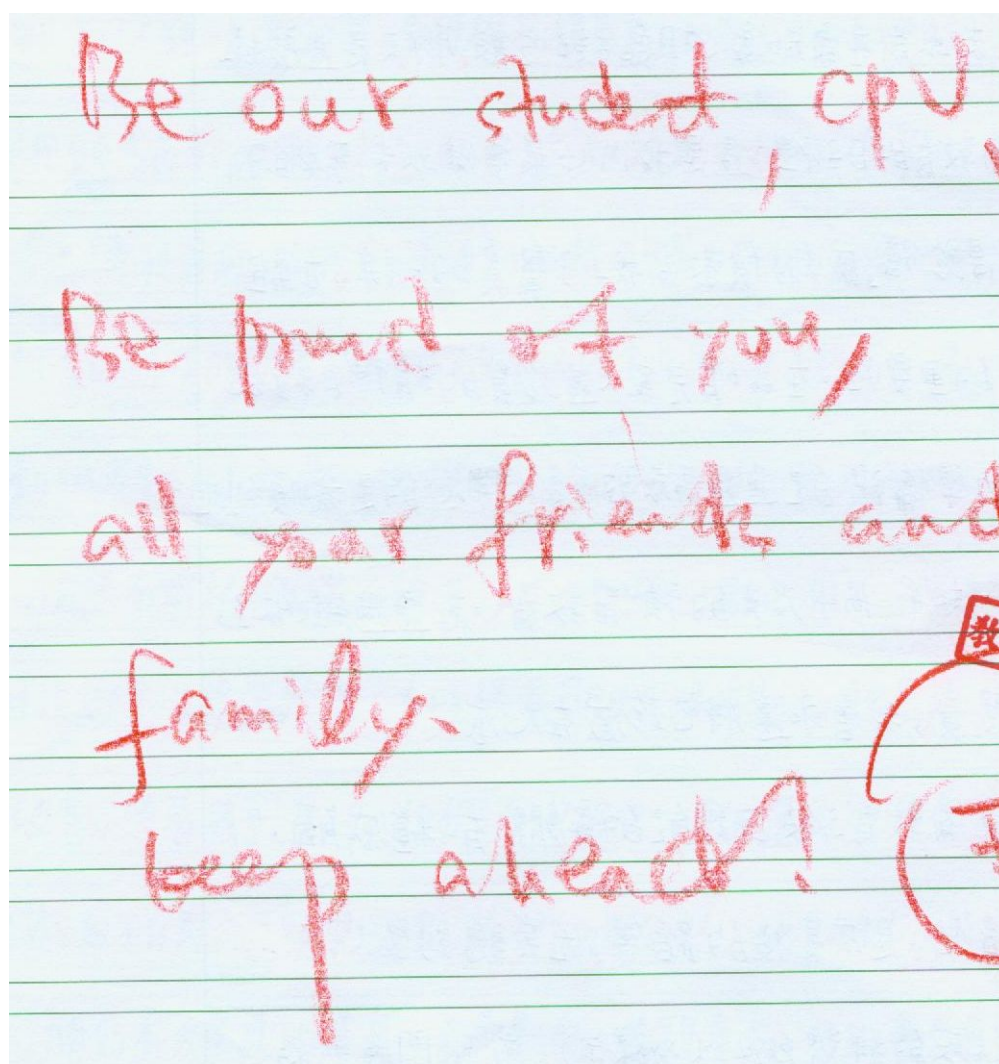 Be our student, CPU,
Be proud of you,
all your friends and
family.
keep ahead!
数